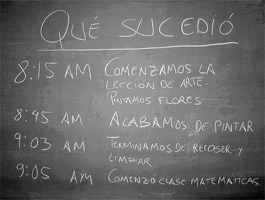 QUÉ SUCEDIÓ
8:15 AM COMENZAMOS LA
LECCIÓN DE ARTE.
PINTAMOS FLORES.
8:45 AM ACABAMOS DE PINTAR
9:03 AM TERMINAMOS DE RECOSER Y
LIMPIAR
9:05 AM COMENZÓ CLASE MATEMATICAS